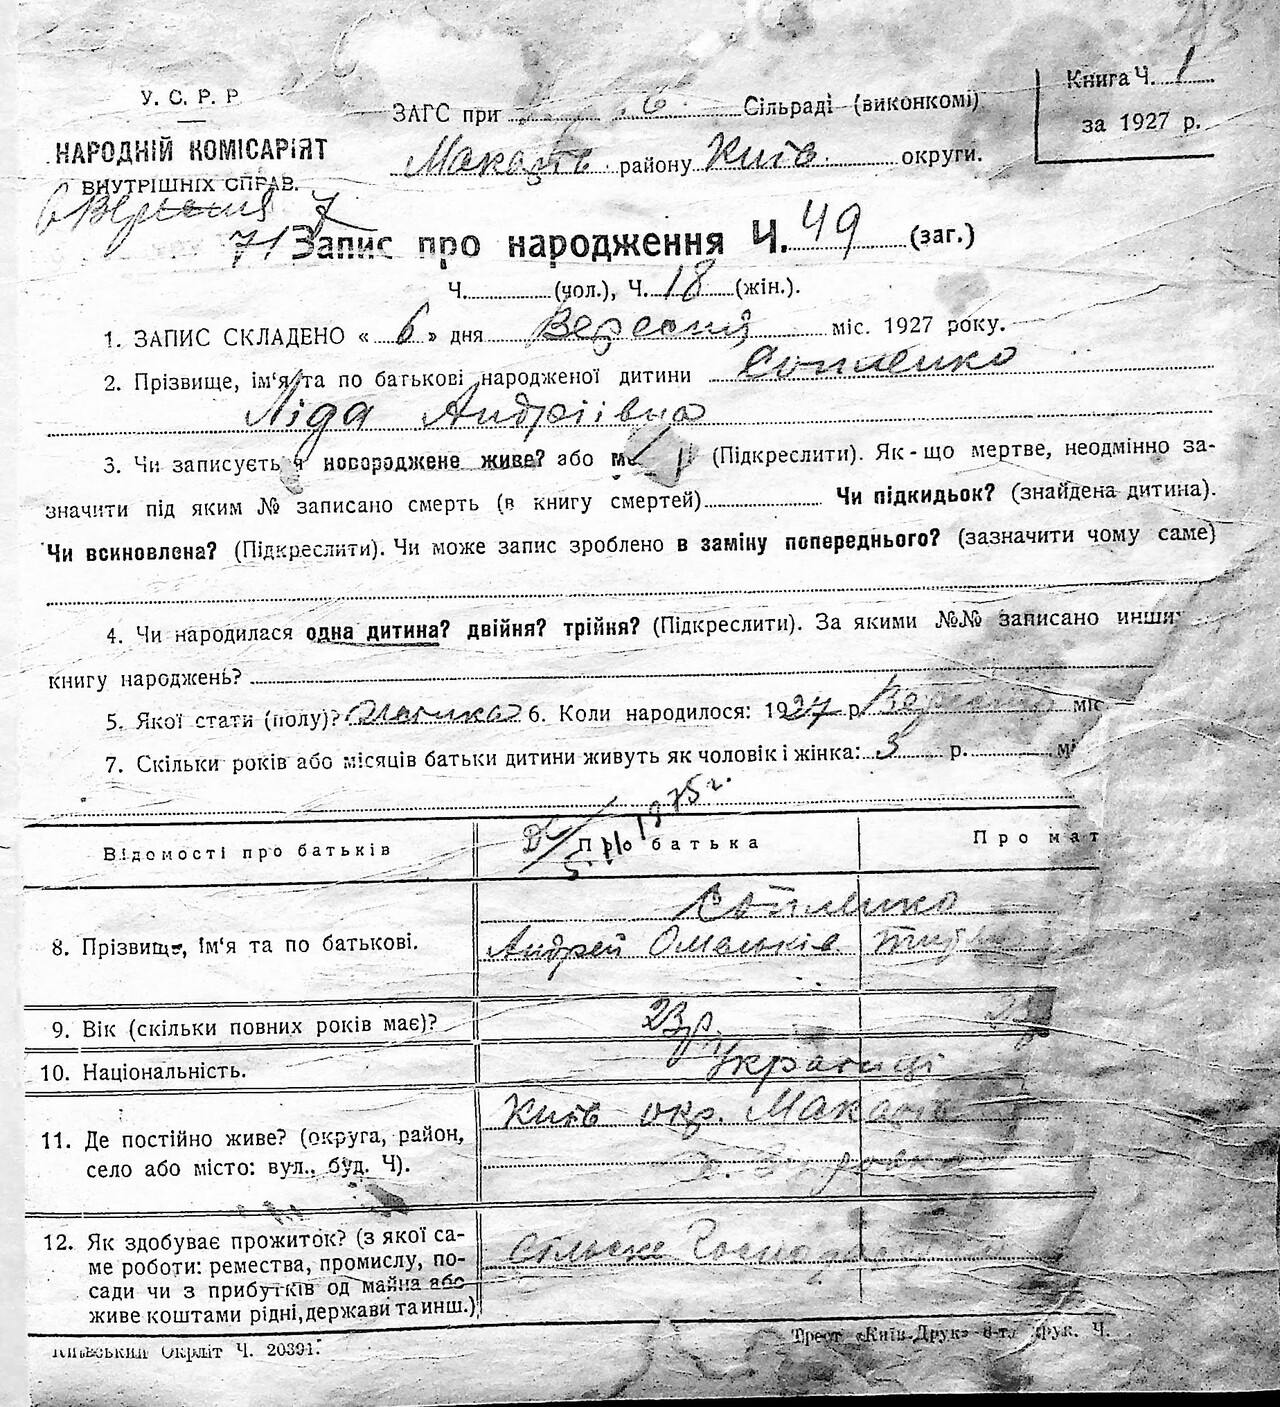 У. С. Р. Р
НАРОДНІЙ КОМІСАРІЯТ
ВНУТРІШНІХ СПРАВ.
6 Вересня 7
71
ЗАГС при Сільраді (виконкомі)
Макарів. району Київ. округи.
Книга Ч. 1
за 1927 р.
Запис про народження Ч. 49 (заг.)
Ч. (чол.), Ч. 18 (жін.).
1. ЗАПИС СКЛАДЕНО « 6 » дня Вересня міс. 1927 року.
2. Прізвище, ім‘я та по батькові народженої дитини
Ліда Андріівна
3. Чи записується новороджене живе? або (Підкреслити). Як-що мертве, неодмінно за-
значити під яким № записано смерть (в книгу смертей) Чи підкидьок? (знайдена дитина).
Чи всиновлена? (Підкреслити). Чи може запис зроблено в заміну попереднього? (зазначити чому саме)
4. Чи народилася одна дитина? двійня? трійня? (Підкреслити). За якими №№ записано инши
книгу народжень?
5. Якої стати (полу)? 6. Коли народилося: 1927 р. Вересня міс
7. Скільки років або місяців батьки дитини живуть як чоловік і жінка: 3 р. мі
1975 г.
Відомості про батьків Про батька Про мат
8. Прізвище, ім‘я та по батькові.
Андрей
9. Вік (скільки повних років має)? 23 р.
10. Національність. Українці
11. Де постійно живе? (округа, район, Київ окр. Макарів
село або місто: вул., буд. Ч).
12. Як здобуває прожиток? (з якої са-
ме роботи: ремества, промислу, по-
сади чи з прибутків од майна або
живе коштами рідні, держави та инш.)
Сільське
Київський Окрліт Ч. 20391.
Трест «Київ-Друк» 8-та друк. Ч.